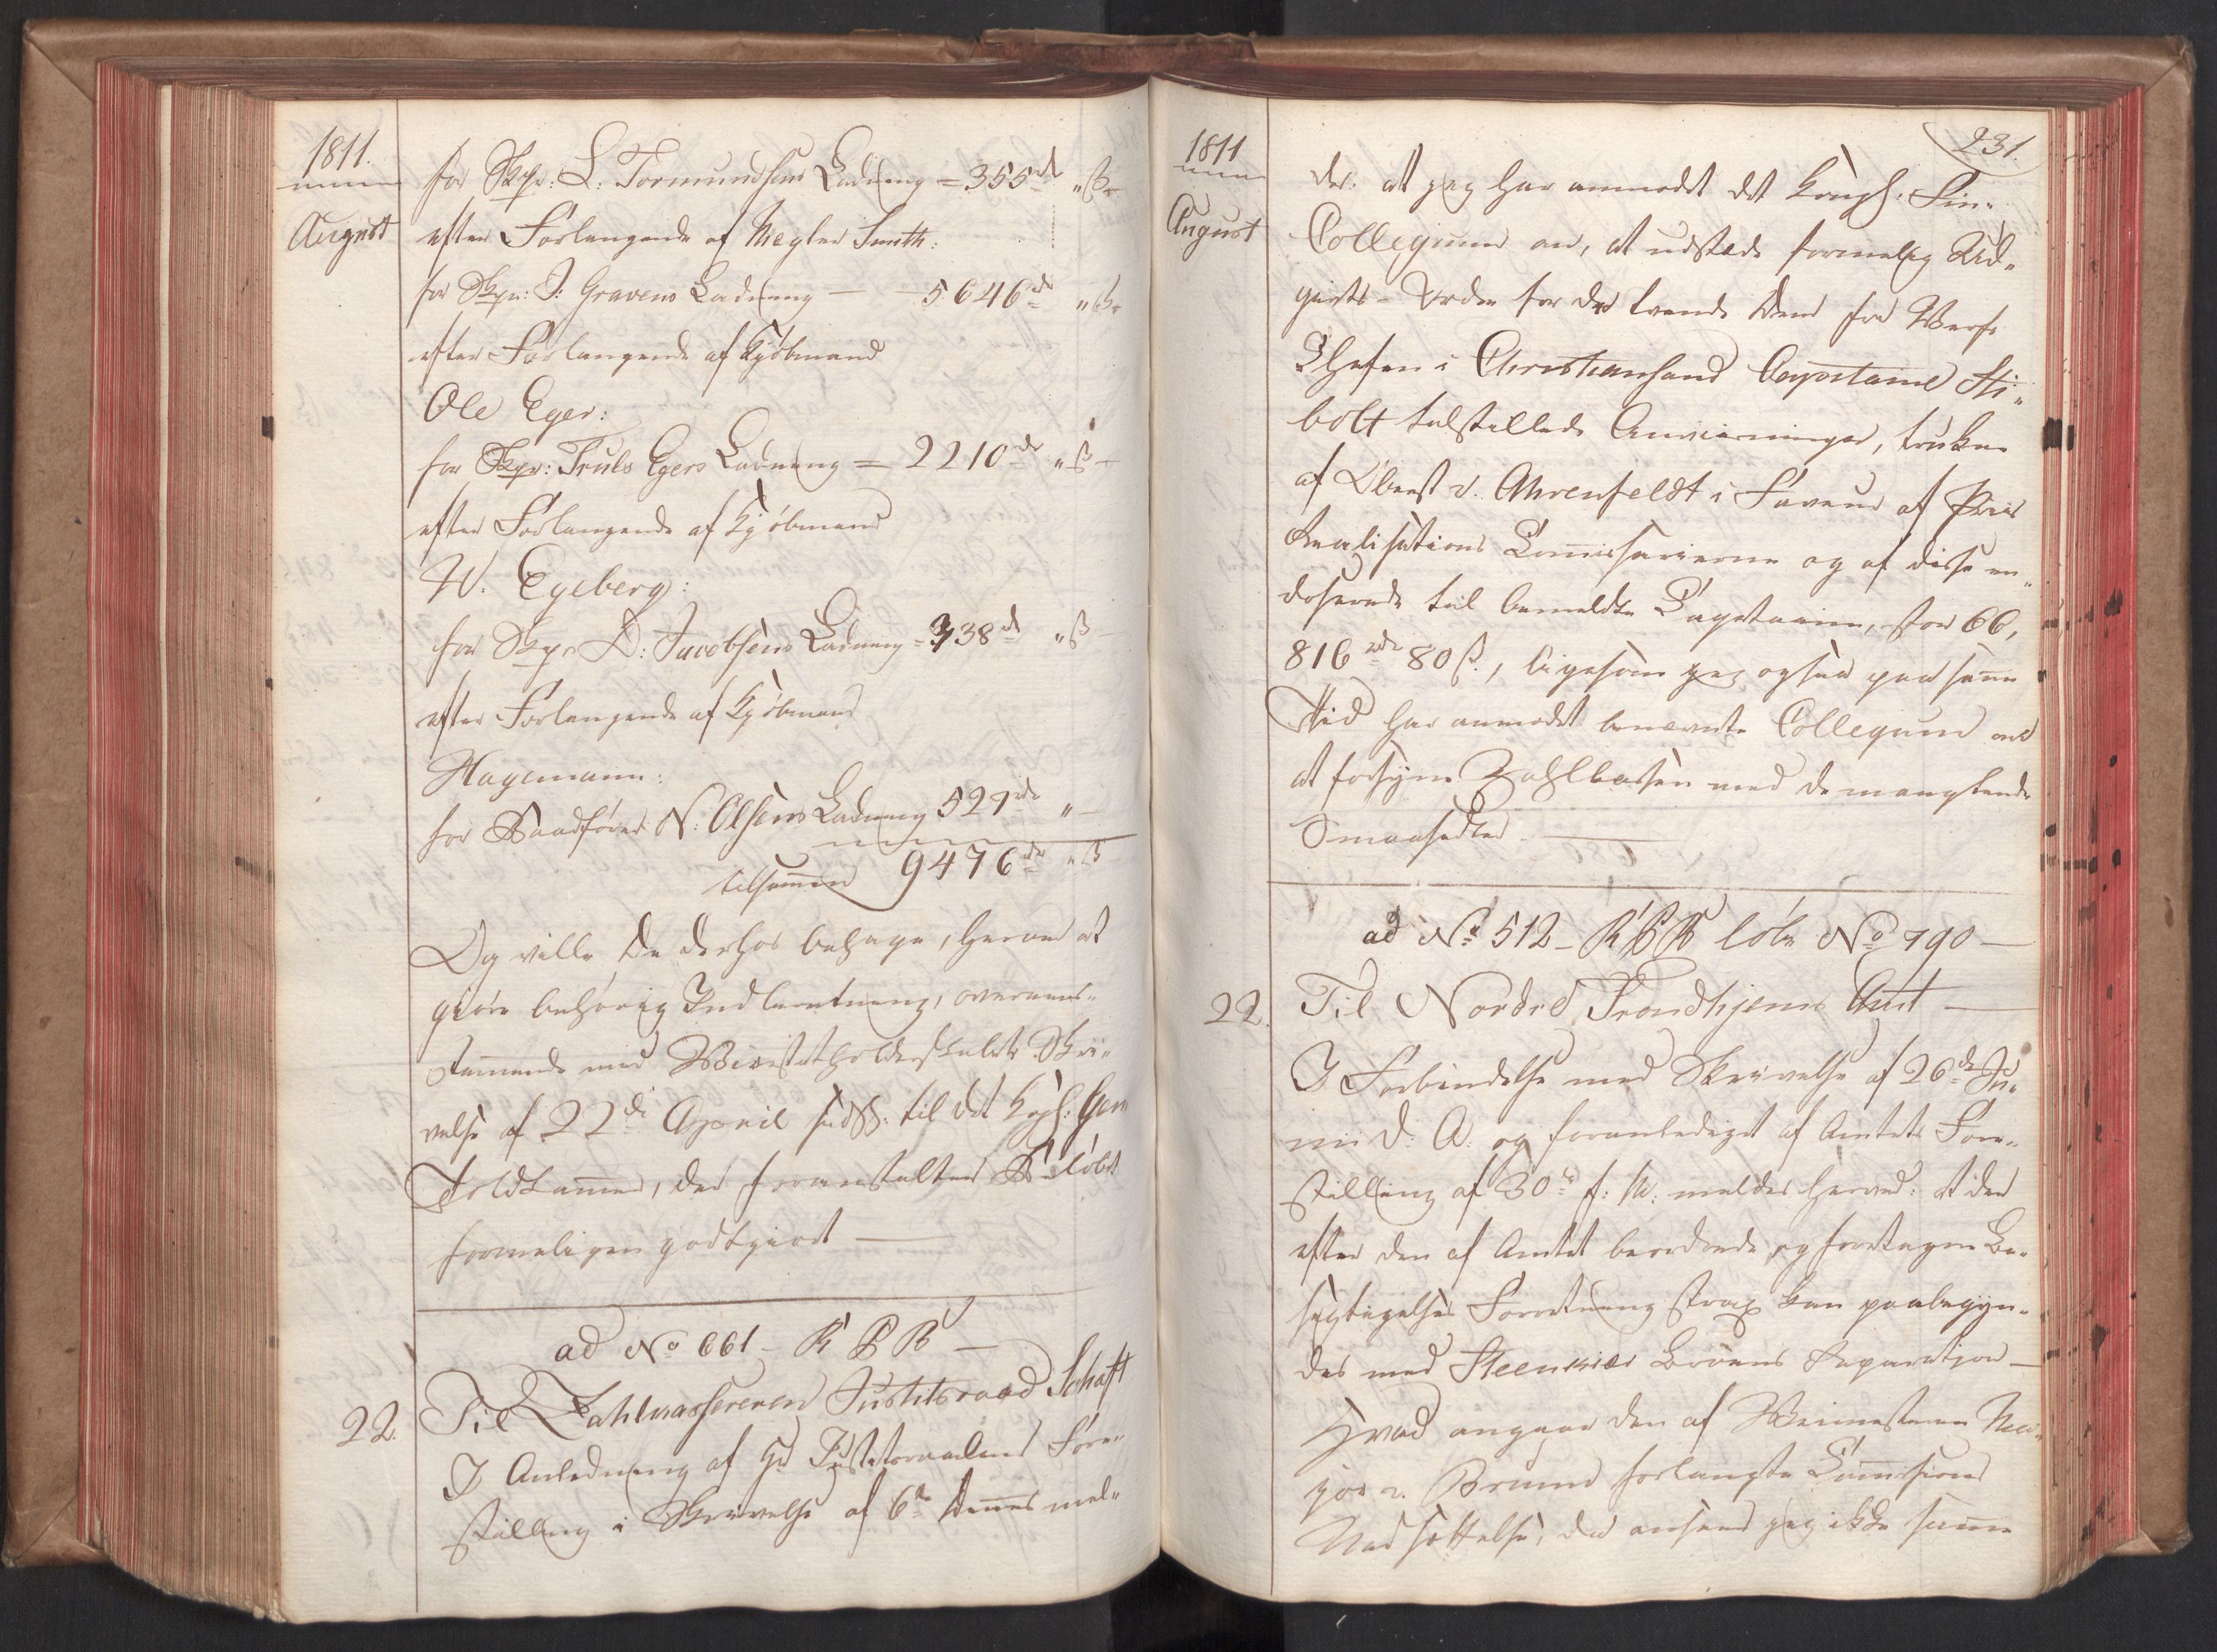 1811.
August
for Skpr: L: Tormundsens Ladning = 355 rd „ ß
efter Forlangende af Mægler Smith:
for Skpr: J: Gravens Ladning — 5646 rd „ ß
efter Forlangende af Kjøbmand
Ole Eger:
for Skpr: Truls Egers Ladning = 2210 rd „ ß —
efter Forlangende af Kjøbmand
W. Egeberg:
for Skpr D: Jacobsens Ladning = 738 rd „ ß —
efter Forlangende af Kjøbmand
Hagemann:
for Baadfører N: Olsens Ladning 527 rd „ —
tilsammen 9476 rd „ ß
Og ville De derhos behage, herom at
giøre behørig Indberetning, overeens-
stemmende med Vicestatholderskabets Skri-
velse af 22de April sidstl. til det Kgl: Gen
Toldkammer, der foranstalter Beløbet
formeligen godtgiort —
ad No 661 — R P B —
22. Til Zahlkasserer Justitsraad Schaft
I Anledning af Hr Justitsraadens Fore-
stilling i Skrivelse af 6te dennes mel-
231.
1811
August
des: at jeg har anmodet det Kongl. Fin-
Collegium om, at udstæde formelig Ud-
givts-Ordre for de tvende dem fra Værfs
Chefen i Christiansand Capitaine Sti-
bolt tilstillede Anviisninger, trukne
af Oberst v. Ahrenfeldt i Faveur af Priis
Realisations Commissarierne og af disse en-
dosserede til bemeldte Capitaine, stor 66,
816 rd 80 ß., ligesom jeg ogsaa paa samme
Tid har anmodet benævnte Collegium om
at forsyne Zahlkassen med de manglende
Smaasedler. —
ad No 512 — R P B løbe No 790 —
22. Til Nordre Trondhjems Amt —
I Forbindelse med Skrivelse af 26de Ju-
ni d: A: og foranlediget af Amtets Fore-
stilling af 30te f: M: meldes herved: at der
efter den af Amtet beordrede og foretagne Be-
sigtigelses Forretning strax kan paabegyn-
des med Steenkiær Broens Reparation —
Hvad angaaer den af Veimesteren Ma-
jor v. Brunn forlangte Commissions
Nedsættelse, da anseer jeg ikke samme